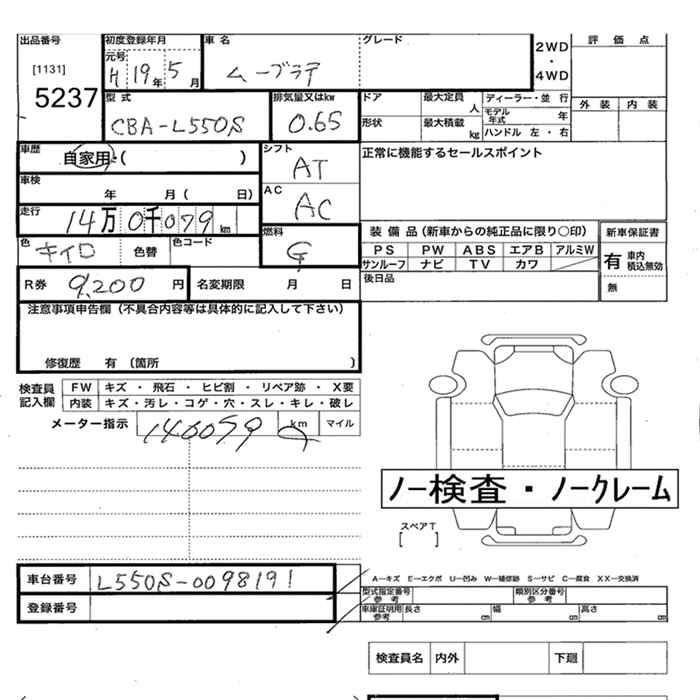 出品番号 初度登録年月 車名 グレード 2WD・4WD 評価点
[1131] 元号 H 19年 5月 ムーブラテ
5237 型式 排気量又はkw ドア 最大定員 人 ディーラー・並行 外装 内装
CBA-L550S 0.65 形状 最大積載 kg モデル年式 年 ハンドル 左・右
車歴 自家用・( ) シフト AT 正常に機能するセールスポイント
車検 年 月( 日) AC AC
走行 14万0千079km 燃料 G 装備品(新車からの純正品に限り○印) 新車保証書
色 キイロ 色替 色コード PS PW ABS エアB アルミW 有 車内積込無効
サンルーフ ナビ TV カワ 無
R券 9,200円 名変期限 月 日 後日品
注意事項申告欄(不具合内容等は具体的に記入して下さい)
修復歴 有(箇所 )
検査員記入欄 FW キズ・飛石・ヒビ割・リペア跡・X要
内装 キズ・汚レ・コゲ・穴・スレ・キレ・破レ
メーター指示 km マイル
ノー検査・ノークレーム
スペアT
[ ]
車台番号 L550S-0098191
登録番号
A―キズ E―エクボ U―凹み W―補修跡 S―サビ C―腐食 XX―交換済
型式指定番号 参考 類別区分番号 参考
車庫証明用 参考 長さ cm 幅 cm 高さ cm
検査員名 内外 下廻